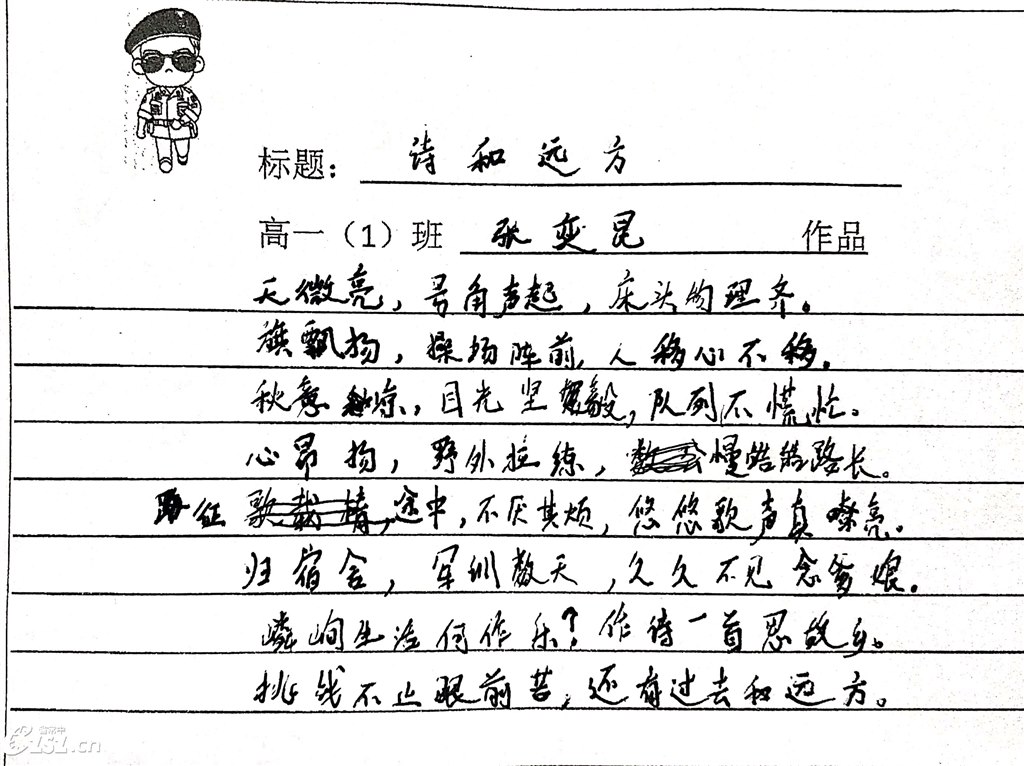 标题： 诗和远方
高一（1）班 张奕昆 作品
天微亮，号角声起，床头物理齐。
旗飘扬，操场阵前，人移心不移。
秋意凉，目光坚毅，队列不慌忙。
心昂扬，野外拉练，慢皓皓路长。
征途中，不厌其烦，悠悠歌声真嘹亮。
归宿舍，军训数天，久久不见念爹娘。
嶙峋生活何作乐？作诗一首思故乡。
挑战不止眼前苦，还有过去和远方。
151.cn